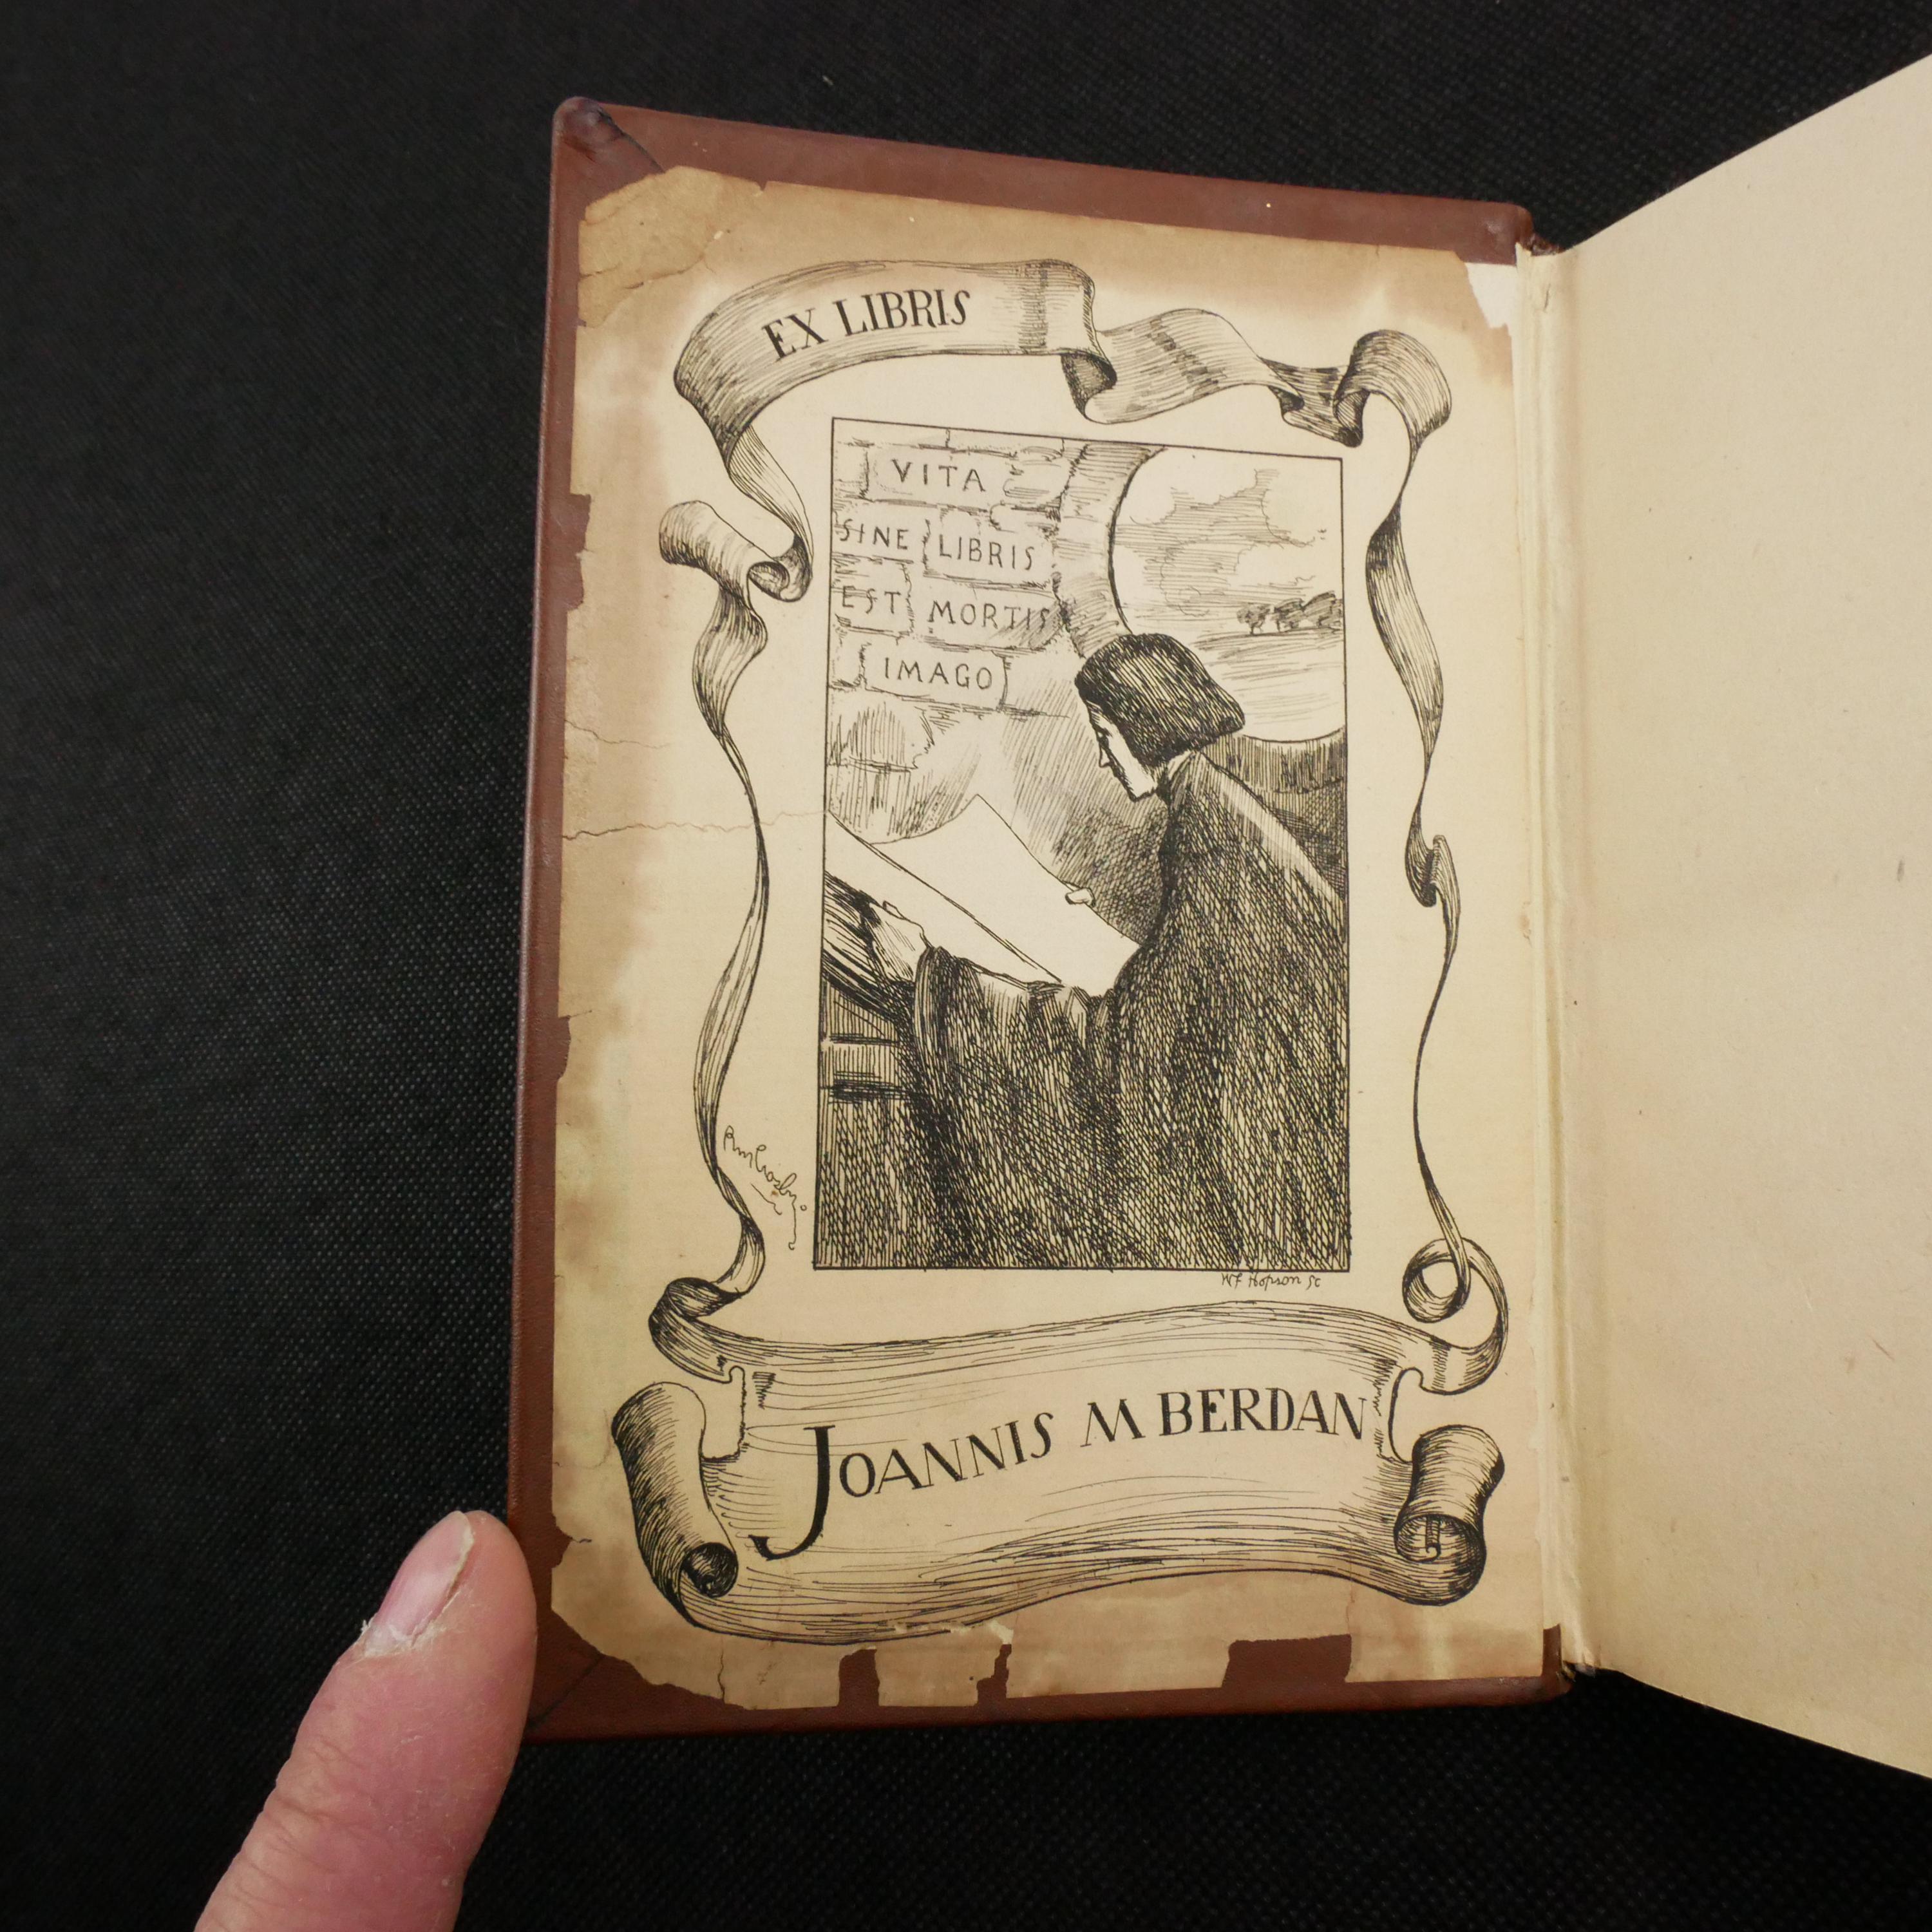 EX LIBRIS
VITA
SINE LIBRIS
EST MORTIS
IMAGO
W F Hopson Sc
JOANNIS M BERDAN